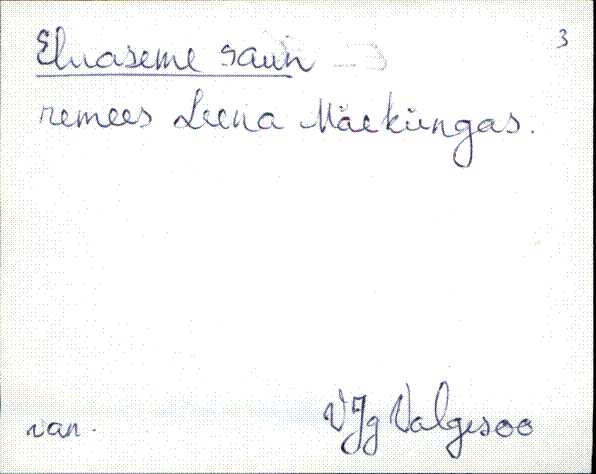 3
Eluaseme saun
remees Leena Mäeküngas.
van.
VJg Valgesoo